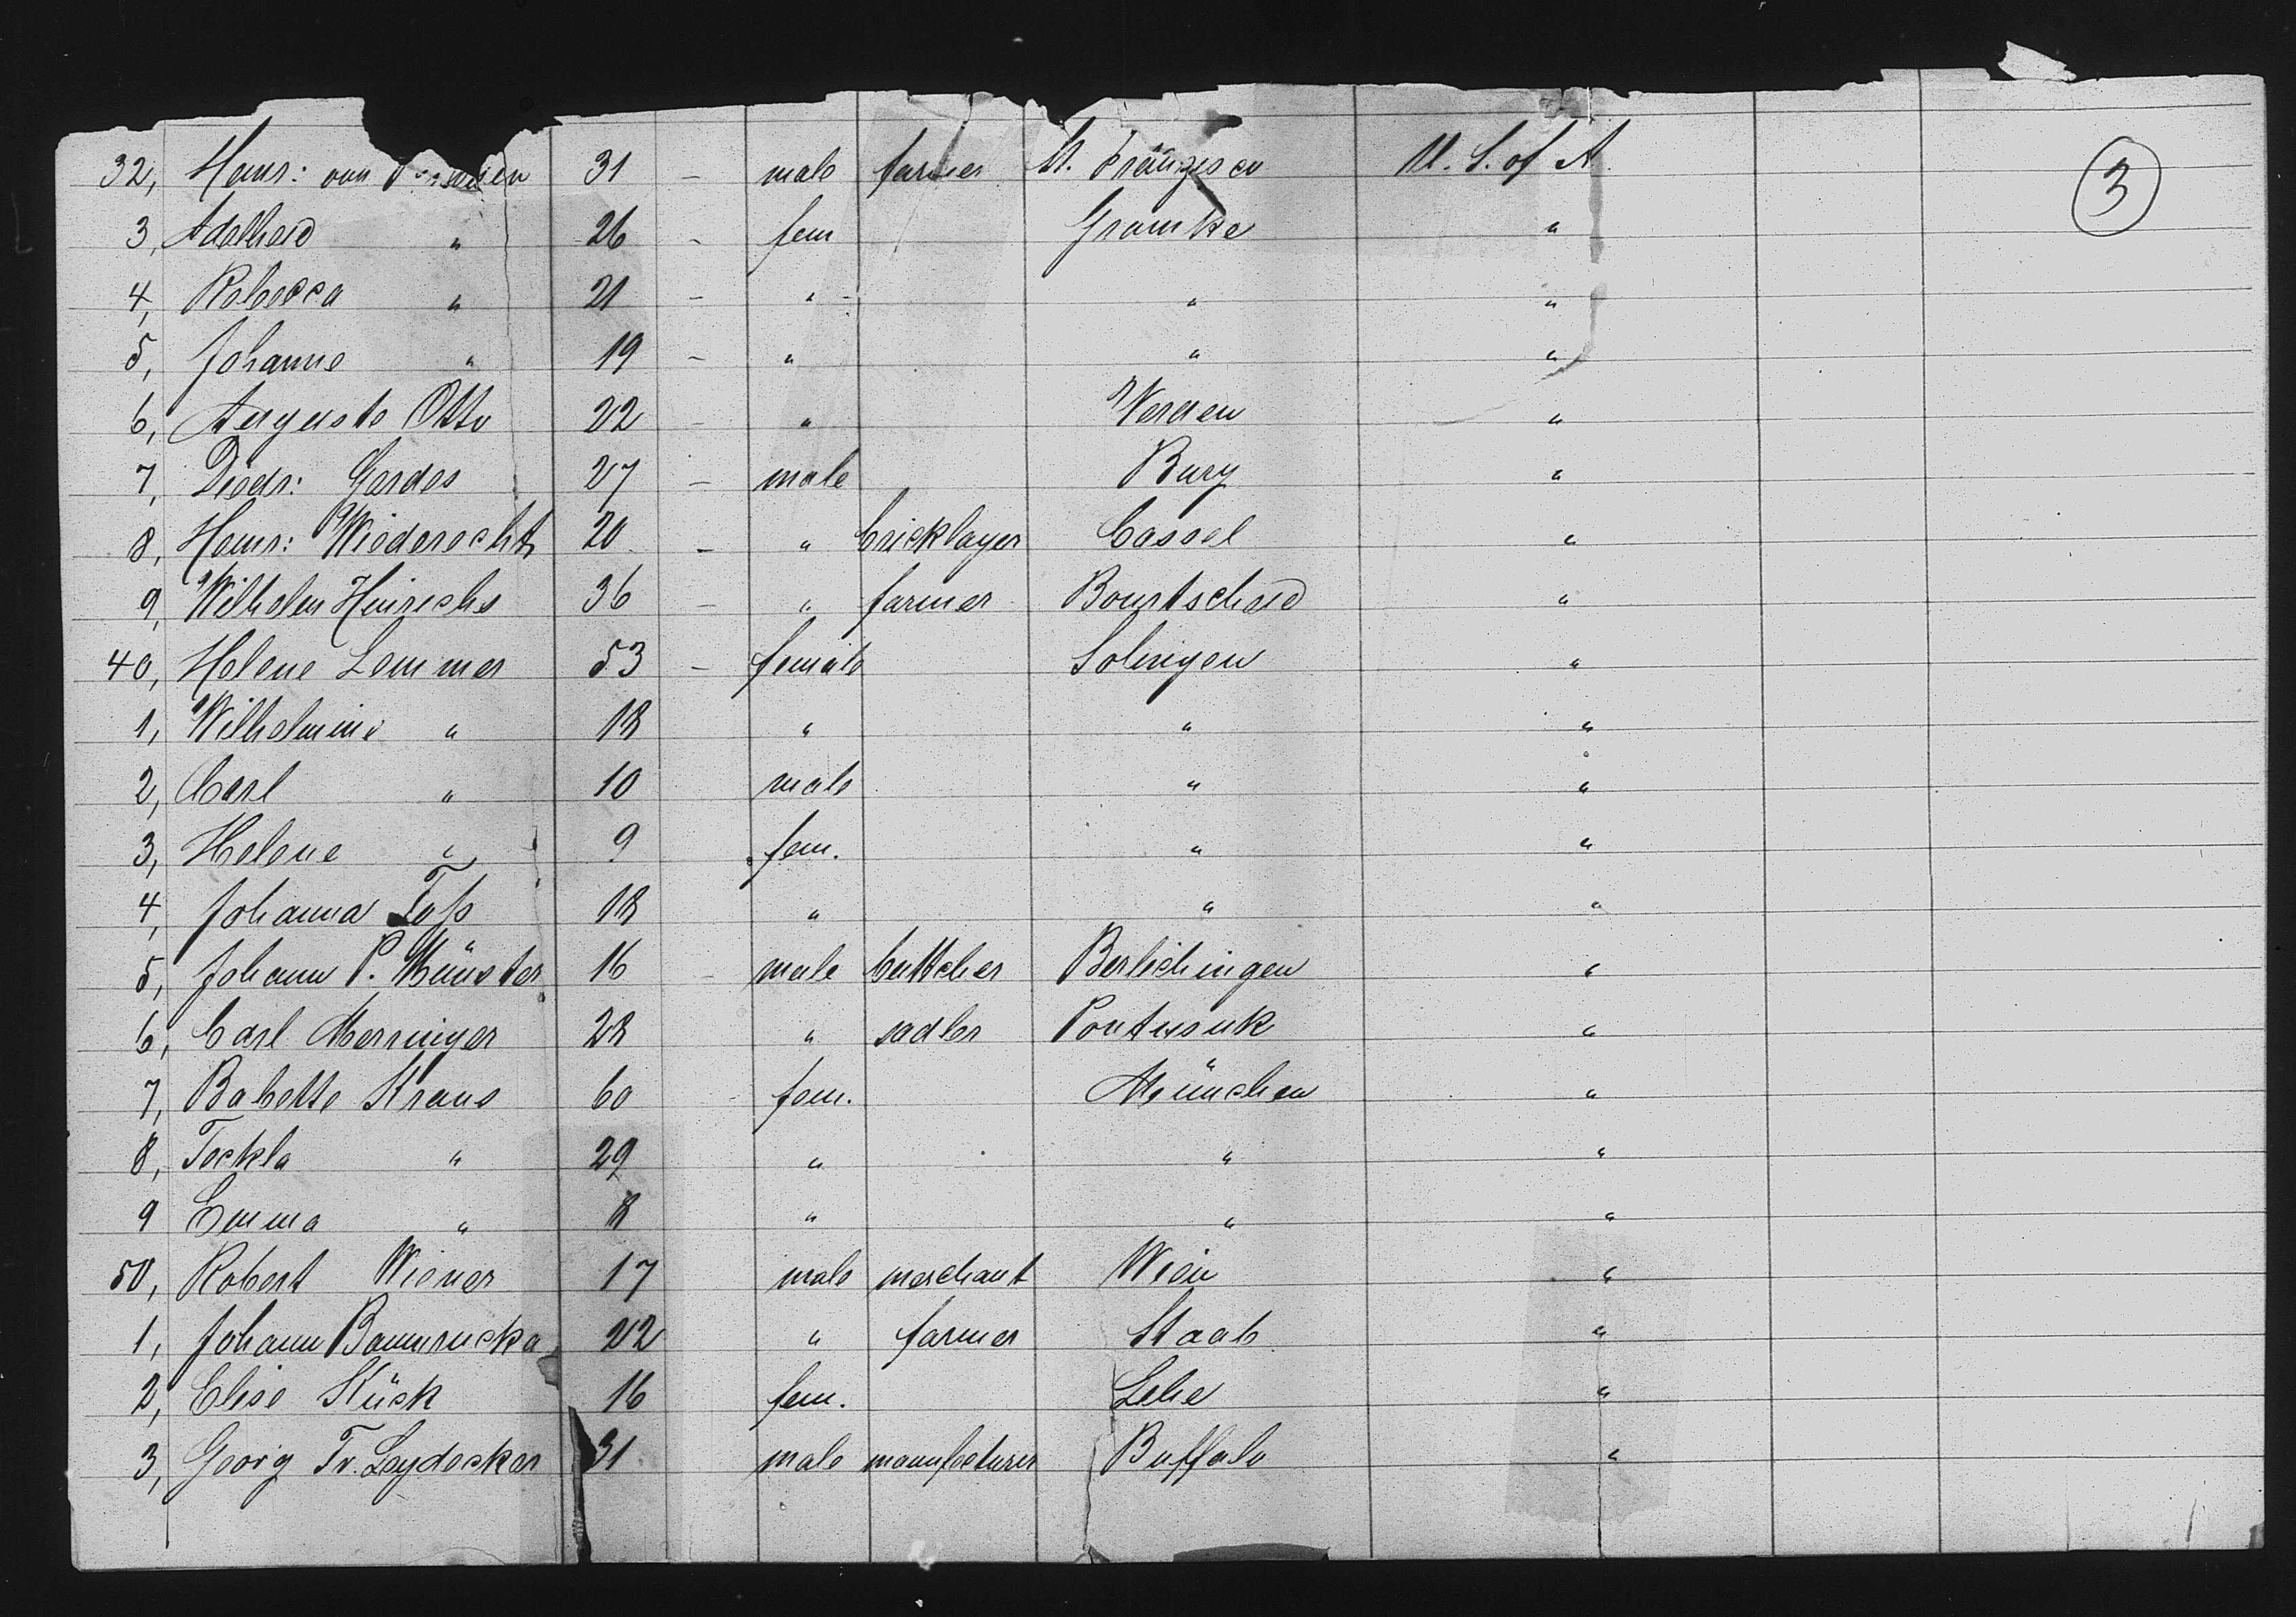 3
32, Heinr: von 31 – male farmer St. Franzisco U. S. of A.
3, Adelheid " 26 – fem Gramke "
4, Rebecca " 21 – " " "
5, Johanne " 19 – " " "
6, Auguste Otto 22 – " Verden "
7, Diedr: Gerdes 27 – male Burg "
8, Heinr: Wiederecht 20 – " bricklayer Cassel "
9, Wilhelm Hinrichs 36 – " farmer Bourtscheid "
40, Helene Lemmer 53 – female Solingen "
1, Wilhelmine " 18 " " "
2, Carl " 10 male " "
3, Helene " 9 fem. " "
4, Johanna 18 " " "
5, Johann P. Münster 16 – male buttcher Berlichingen "
6, Carl Merringer 28 " sadler "
7, Babette Kraus 60 – fem. München "
8, Teckla " 29 " " "
9 Emma " 8 " " "
50, Robert Wiener 17 male merchant Wien "
1, Johann 22 " farmer Staab "
2, Elise Kück 16 fem. Lehe "
3, Georg Fr. Leydecker 31 male manufacturer Buffalo "